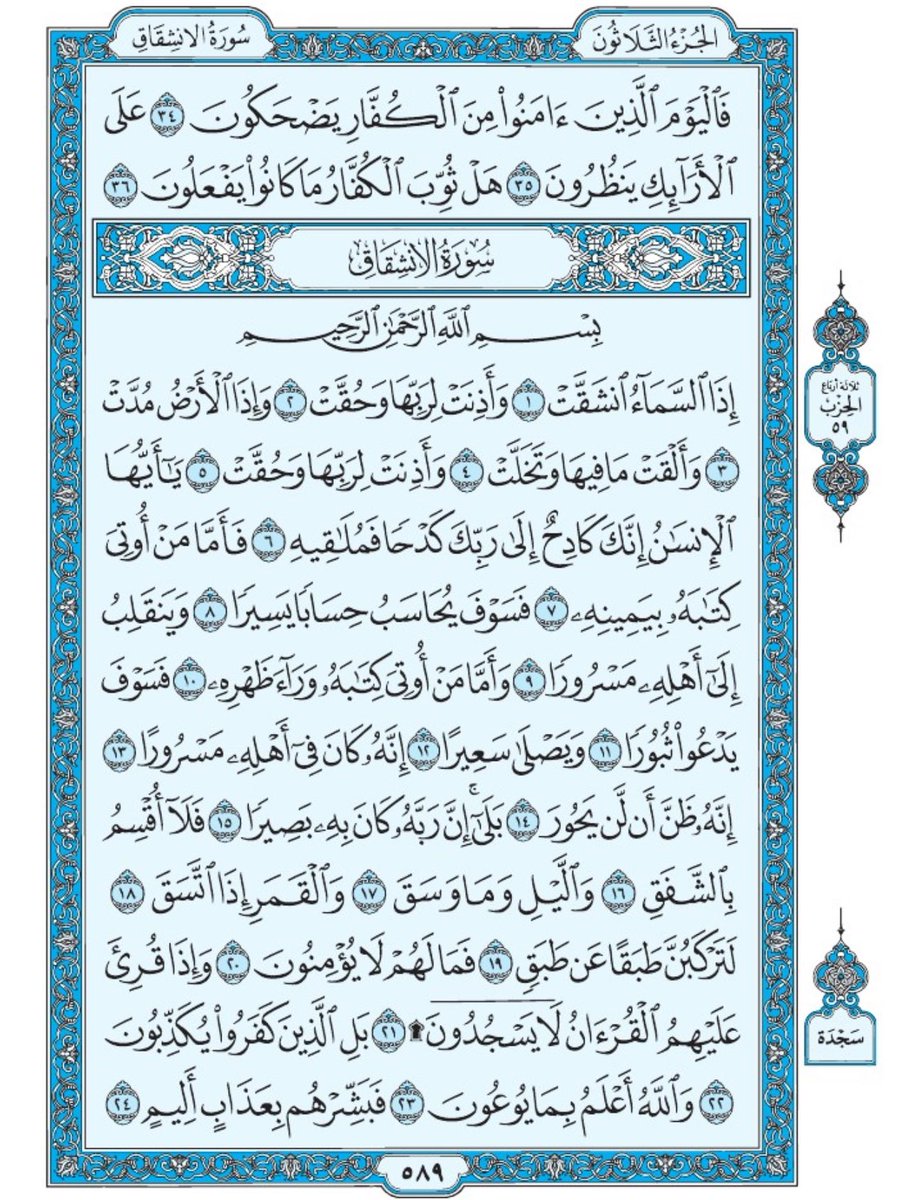 الجُزْءُ الثَّلَاثُونَ
سُورَةُ الانشِقَاقِ
فَٱلْيَوْمَ ٱلَّذِينَ ءَامَنُوا۟ مِنَ ٱلْكُفَّارِ يَضْحَكُونَ ٣٤ عَلَى
ٱلْأَرَآئِكِ يَنظُرُونَ ٣٥ هَلْ ثُوِّبَ ٱلْكُفَّارُ مَا كَانُوا۟ يَفْعَلُونَ ٣٦
سُورَةُ الانشِقَاقِ
بِسْمِ ٱللَّهِ ٱلرَّحْمَٰنِ ٱلرَّحِيمِ
إِذَا ٱلسَّمَآءُ ٱنشَقَّتْ ١ وَأَذِنَتْ لِرَبِّهَا وَحُقَّتْ ٢ وَإِذَا ٱلْأَرْضُ مُدَّتْ
٣ وَأَلْقَتْ مَا فِيهَا وَتَخَلَّتْ ٤ وَأَذِنَتْ لِرَبِّهَا وَحُقَّتْ ٥ يَٰٓأَيُّهَا
ٱلْإِنسَٰنُ إِنَّكَ كَادِحٌ إِلَىٰ رَبِّكَ كَدْحًا فَمُلَٰقِيهِ ٦ فَأَمَّا مَنْ أُوتِىَ
كِتَٰبَهُۥ بِيَمِينِهِۦ ٧ فَسَوْفَ يُحَاسَبُ حِسَابًا يَسِيرًا ٨ وَيَنقَلِبُ
إِلَىٰٓ أَهْلِهِۦ مَسْرُورًا ٩ وَأَمَّا مَنْ أُوتِىَ كِتَٰبَهُۥ وَرَآءَ ظَهْرِهِۦ ١٠ فَسَوْفَ
يَدْعُوا۟ ثُبُورًا ١١ وَيَصْلَىٰ سَعِيرًا ١٢ إِنَّهُۥ كَانَ فِىٓ أَهْلِهِۦ مَسْرُورًا ١٣
إِنَّهُۥ ظَنَّ أَن لَّن يَحُورَ ١٤ بَلَىٰٓ ۚ إِنَّ رَبَّهُۥ كَانَ بِهِۦ بَصِيرًا ١٥ فَلَآ أُقْسِمُ
بِٱلشَّفَقِ ١٦ وَٱلَّيْلِ وَمَا وَسَقَ ١٧ وَٱلْقَمَرِ إِذَا ٱتَّسَقَ ١٨
لَتَرْكَبُنَّ طَبَقًا عَن طَبَقٍ ١٩ فَمَا لَهُمْ لَا يُؤْمِنُونَ ٢٠ وَإِذَا قُرِئَ
عَلَيْهِمُ ٱلْقُرْءَانُ لَا يَسْجُدُونَ ۩ ٢١ بَلِ ٱلَّذِينَ كَفَرُوا۟ يُكَذِّبُونَ
٢٢ وَٱللَّهُ أَعْلَمُ بِمَا يُوعُونَ ٢٣ فَبَشِّرْهُم بِعَذَابٍ أَلِيمٍ ٢٤
٥٨٩
ثلاثة أرباع
الحِزْب
٥٩
سَجْدَة